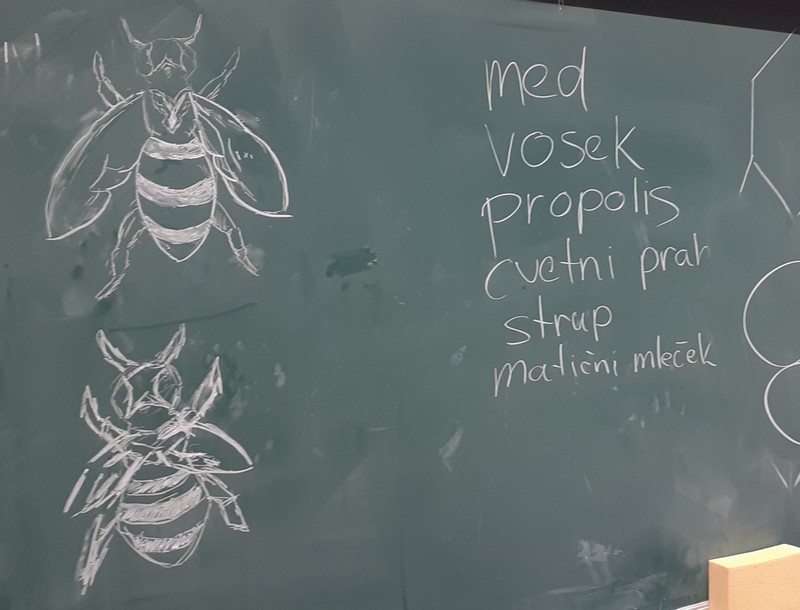 med
vosek
propolis
cvetni prah
strup
matični mleček